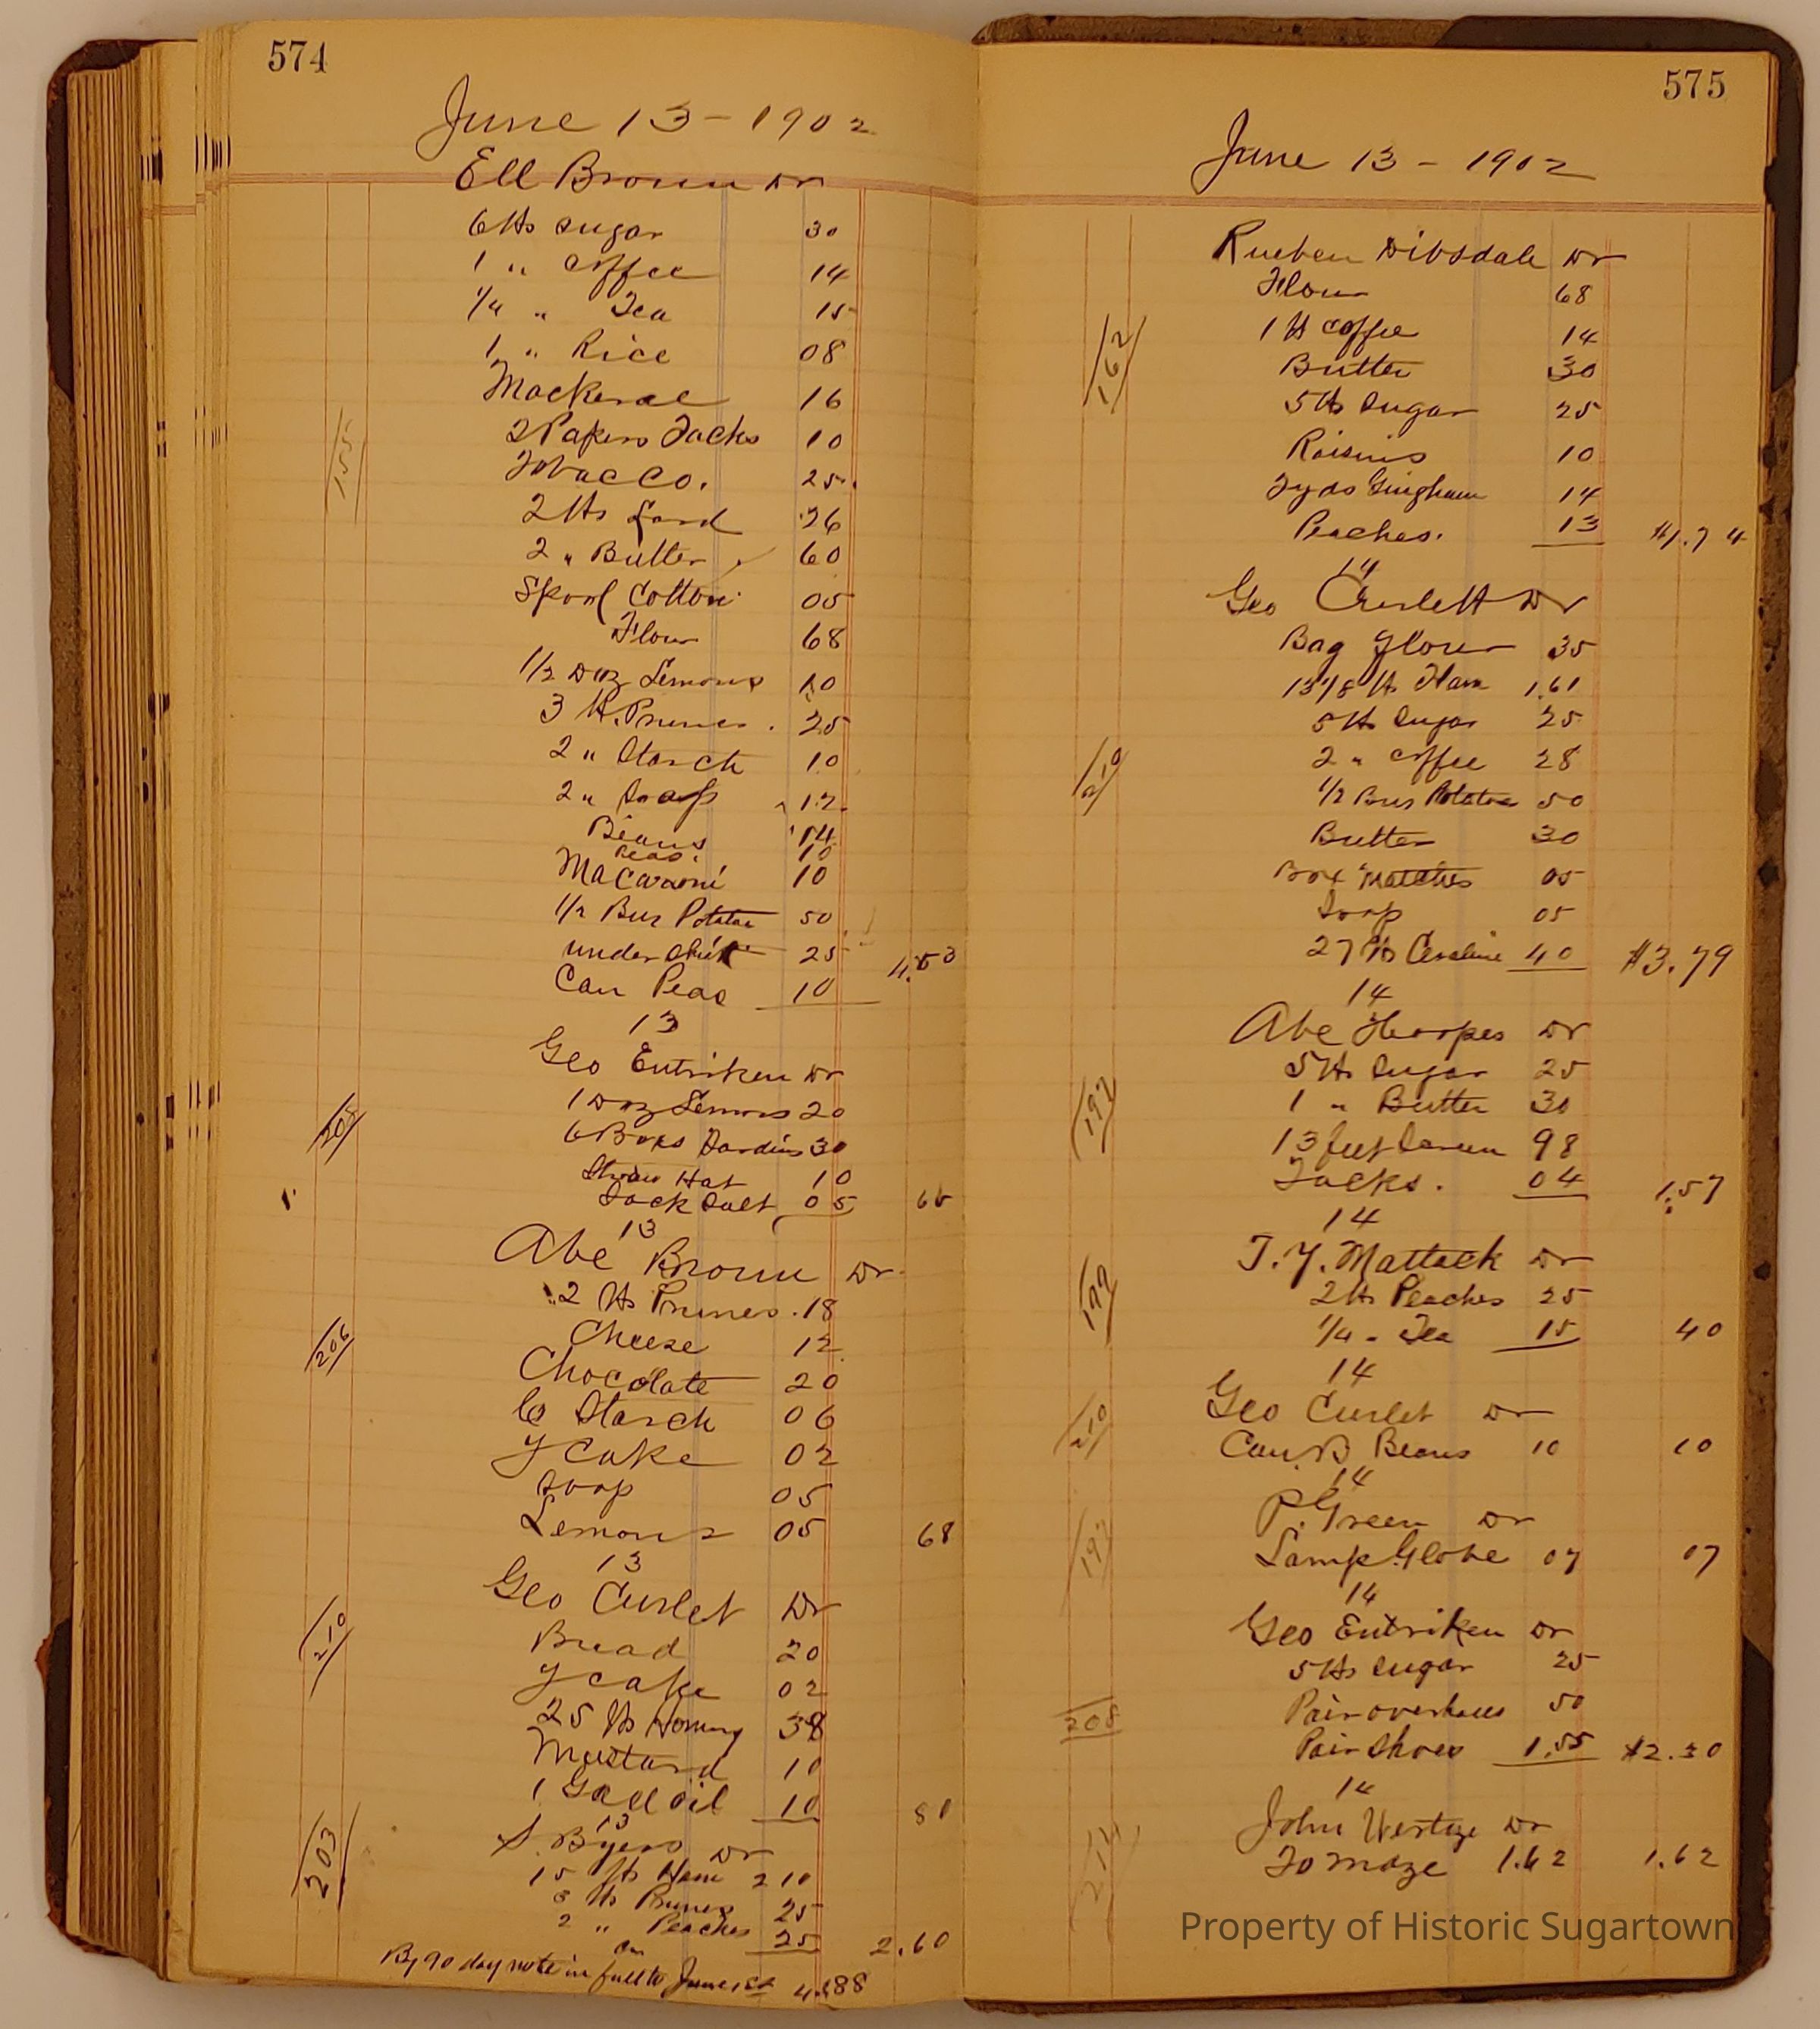 574
June 13 - 1902
Ell Brown Dr
155
6 lbs Sugar 30
1 " Coffee 14
1/4 " Tea 15
1 " Rice 08
Mackeral 16
2 Papers Tacks 10
Tobacco. 25
2 lbs Lard 26
2 " Butter 60
Spool Cotton 05
Flour 68
1/2 Doz Lemons 10
3 lb. Prunes. 25
2 " Starch 10
2 " Soap 12
Beans 14
Peas. 10
Macaroni 10
1/2 Bus Potatoe 50
under Shirt 25
Can Peas 10 4.53
13
Geo Entriken Dr
208
1 Doz Lemons 20
6 Boxs Sardins 30
Straw Hat 10
Sack Salt 05 65
13
Abe Brown Dr
206
2 lbs Prunes 18
Cheese 12
Chocolate 20
Co Starch 06
Y Cake 02
Soap 05
Lemons 05 68
13
Geo Curlet Dr
210
Bread 20
Y Cake 02
25 lbs Hominy 38
Mustard 10
1 Gall Oil 10 80
13
S. Byers Dr
203
15 lbs Ham 2 10
3 lbs Prunes 25
2 " Peaches 25 2.60
By 90 day note in full to June 1st 4.88
575
June 13 - 1902
Rueben Dibsdale Dr
162
Flour 68
1 lb Coffee 14
Butter 30
5 lbs Sugar 25
Raisins 10
2 yds Gingham 14
Peaches. 13 $1.74
14
Geo Curlett Dr
210
Bag Flour 35
13 7/8 lbs Ham 1.61
5 lbs Sugar 25
2 " Coffee 28
1/2 Bus Potatoe 50
Butter 30
Box Matches 05
Soap 05
27 lbs Ceraline 40 $3.79
14
Abe Hoopes Dr
197
5 lbs Sugar 25
1 " Butter 30
13 feet Screen 98
Tacks. 04 1.57
14
T. Y. Mattack Dr
179
2 lbs Peaches 25
1/4 " Tea 15 40
14
Geo Curlet Dr
210
Can B Beans 10 10
14
P. Green Dr
Lamp Globe 07 07
14
Geo Entriken Dr
208
5 lbs Sugar 25
Pair overhaus 50
Pair Shoes 1.55 $2.30
14
John Dr
To Maze 1.62 1.62
Property of Historic Sugartown